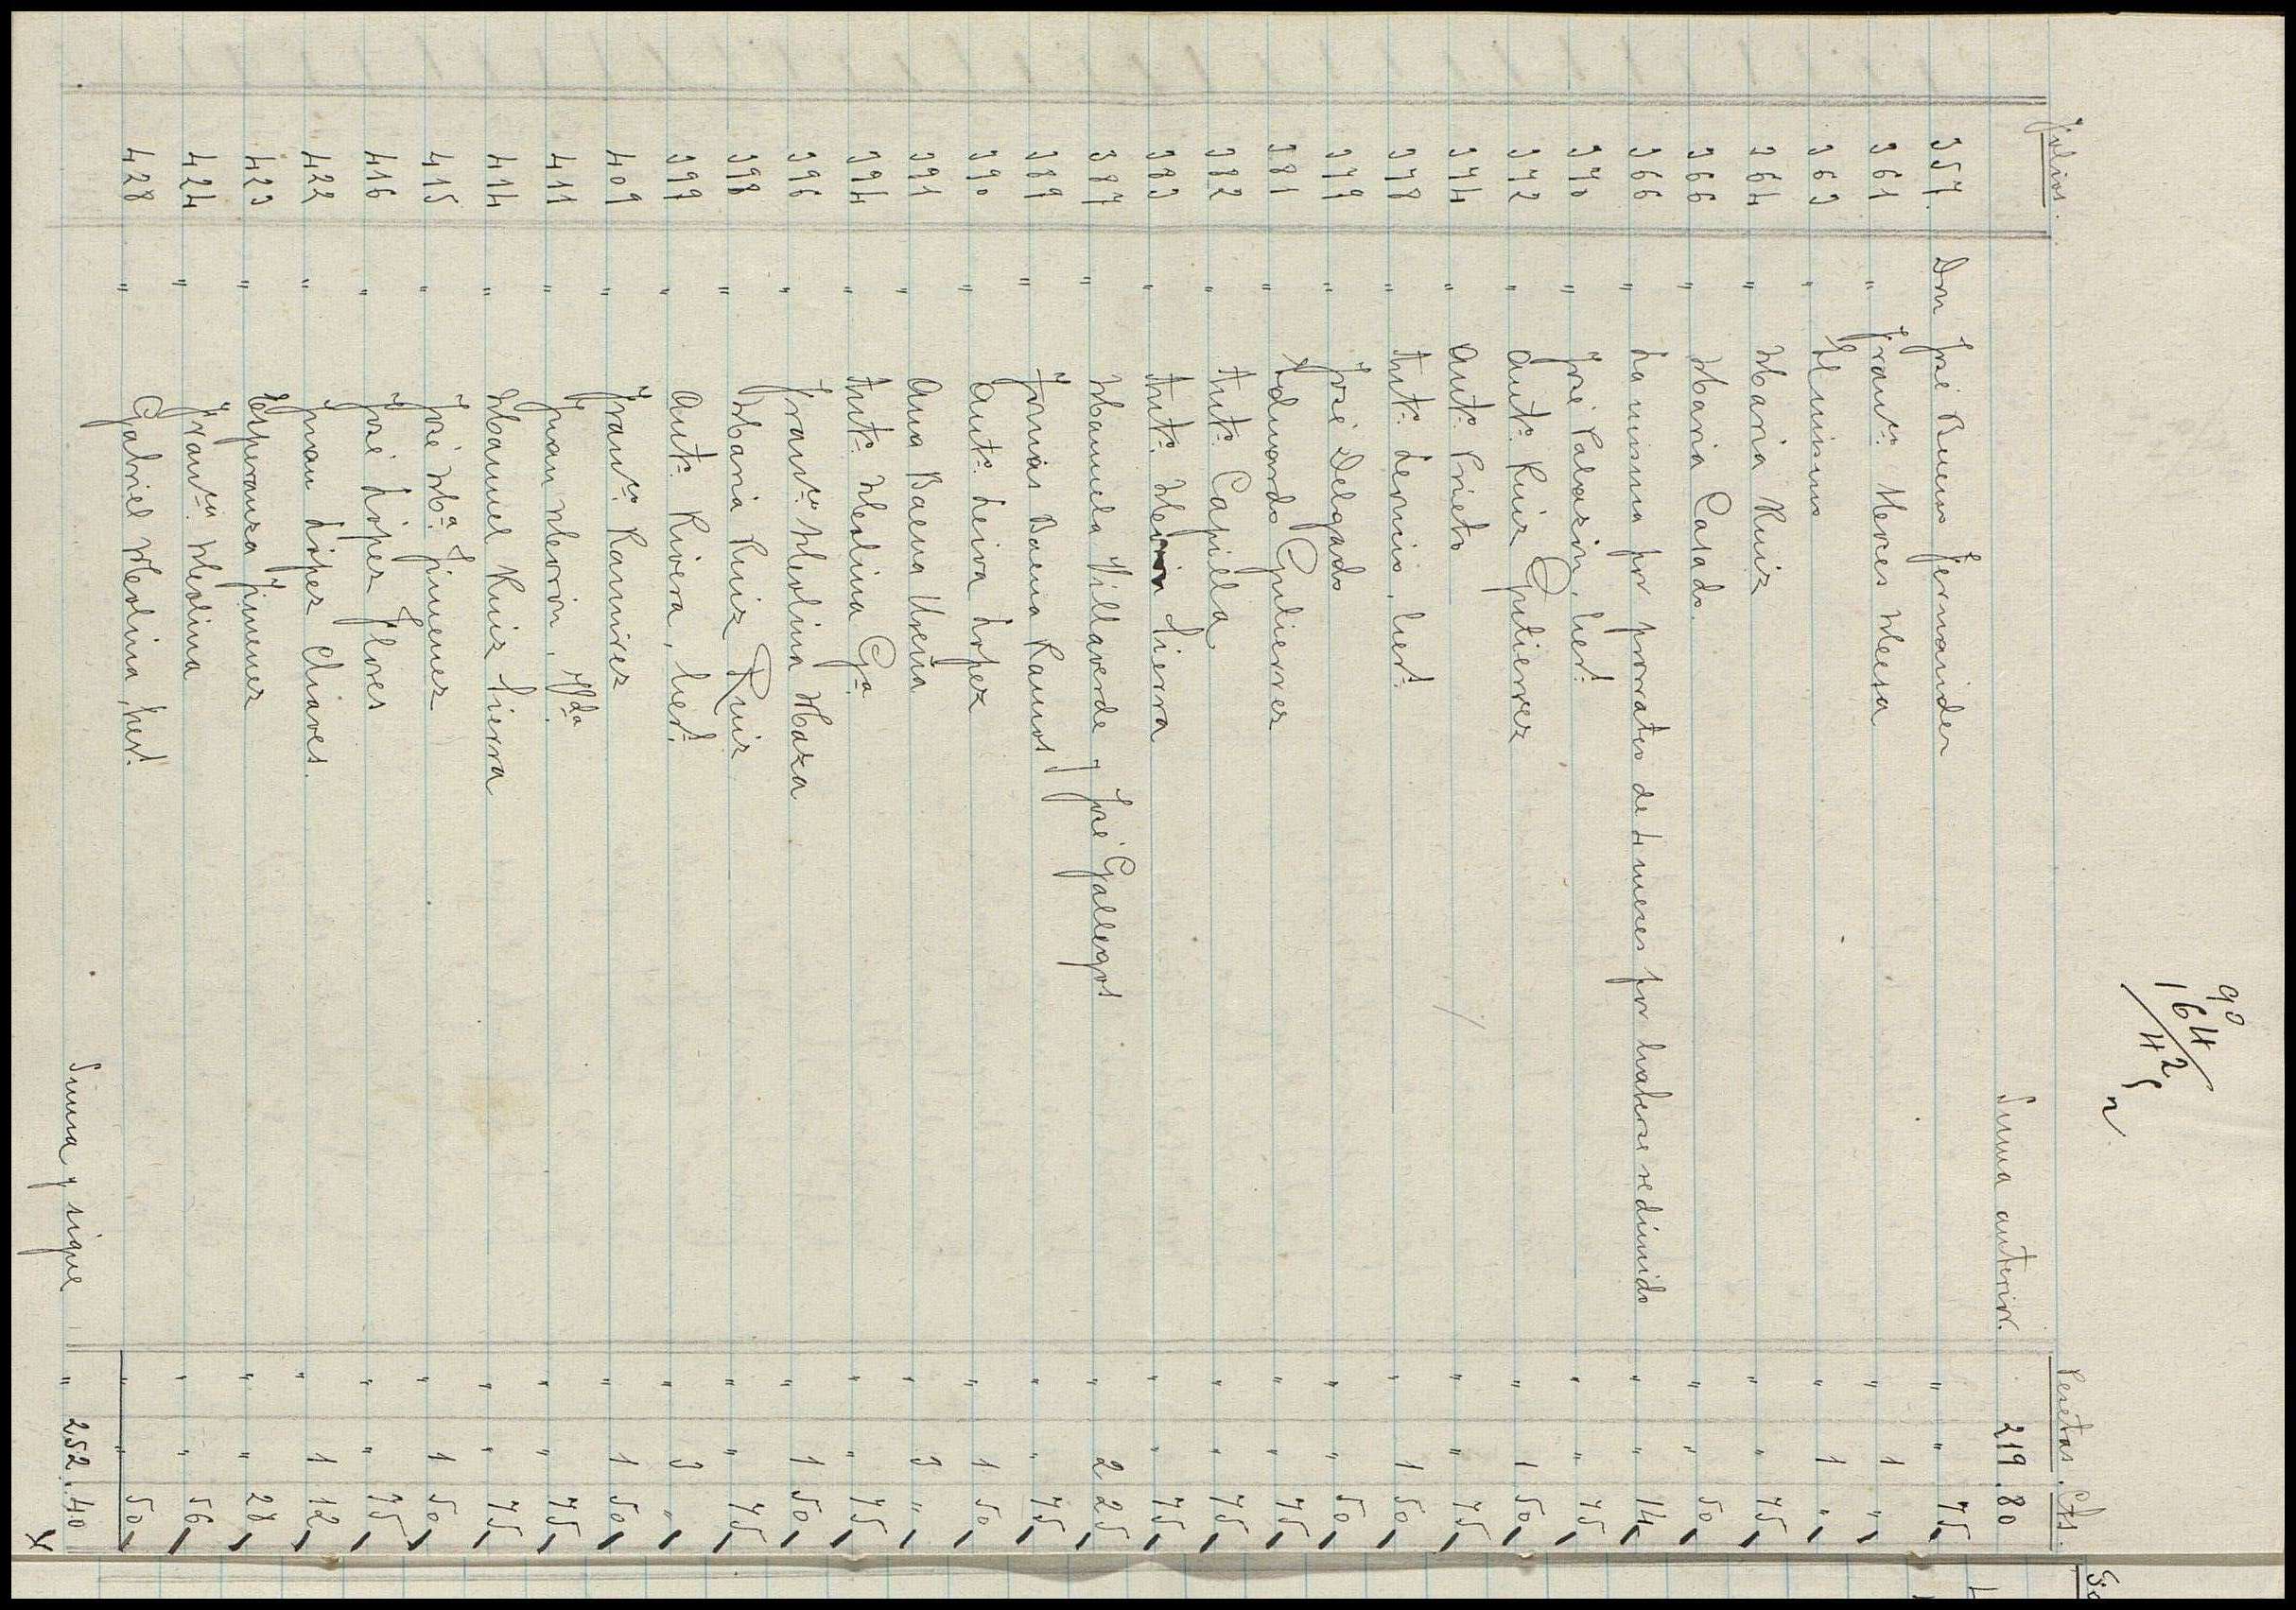 90
164/42
Folios. Pesetas. Cts.
Suma anterior. 219. 80
357. Don José Bueno Fernandez " " 75
361 " Franco. Merer Mesa " 1 "
363 " El mismo " 1 "
364 " Maria Ruiz " " 75
366 " Maria Casado. " " 50
366 " La misma por prorrateo de 4 meses por haberse redimido " " 14
370 " José Palazón, herd. " " 75
372 " Anto. Ruiz Gutierrez " 1 50
374 " Anto. Prieto " " 75
378 " Anto. Leruio, herd. " 1 50
379 " José Delgado " " 50
381 " Eduardo Gutierrez " " 75
382 " Anto. Capilla " " 75
383 " Anto. Sierra " " 75
387 " Manuela Villaverde y José Gallegos " 2 25
389 " Tomás Baena Ramos " " 75
390 " Anto. Leiva Lopez " 1 50
391 " Ana Baena Ureña " 3 "
394 " Anto. Molina Ga. " " 75
396 " Franco. Molina Maza " 1 50
398 " Maria Ruiz Ruiz " " 75
399 " Anto. Rivera, herd. " 3 "
409 " Franco. Ramirez " 1 50
411 " Juan Moron, Vda. " " 75
414 " Manuel Ruiz Sierra " " 75
415 " José Ma. Jimenez " 1 50
416 " José López Flores " " 75
422 " Juan López Chaves. " 1 12
423 " Esperanza Jimenez " " 28
424 " Franca. Molina " " 56
428 " Gabriel Molina, herd. " " 50
Suma y sigue " 252. 40